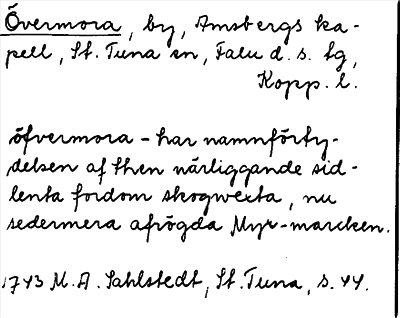 Övermora, by, Amsbergs ka-
pell, St. Tuna sn, Falu d. s. tg,
Kopp. l.
öfvermora – har namnförty-
delsen af then närliggande sid-
lenta fordom skogwexta, nu
sedermera afrögda Myr-marcken.
1743 M. A. Sahlstedt, St. Tuna, s. 44.